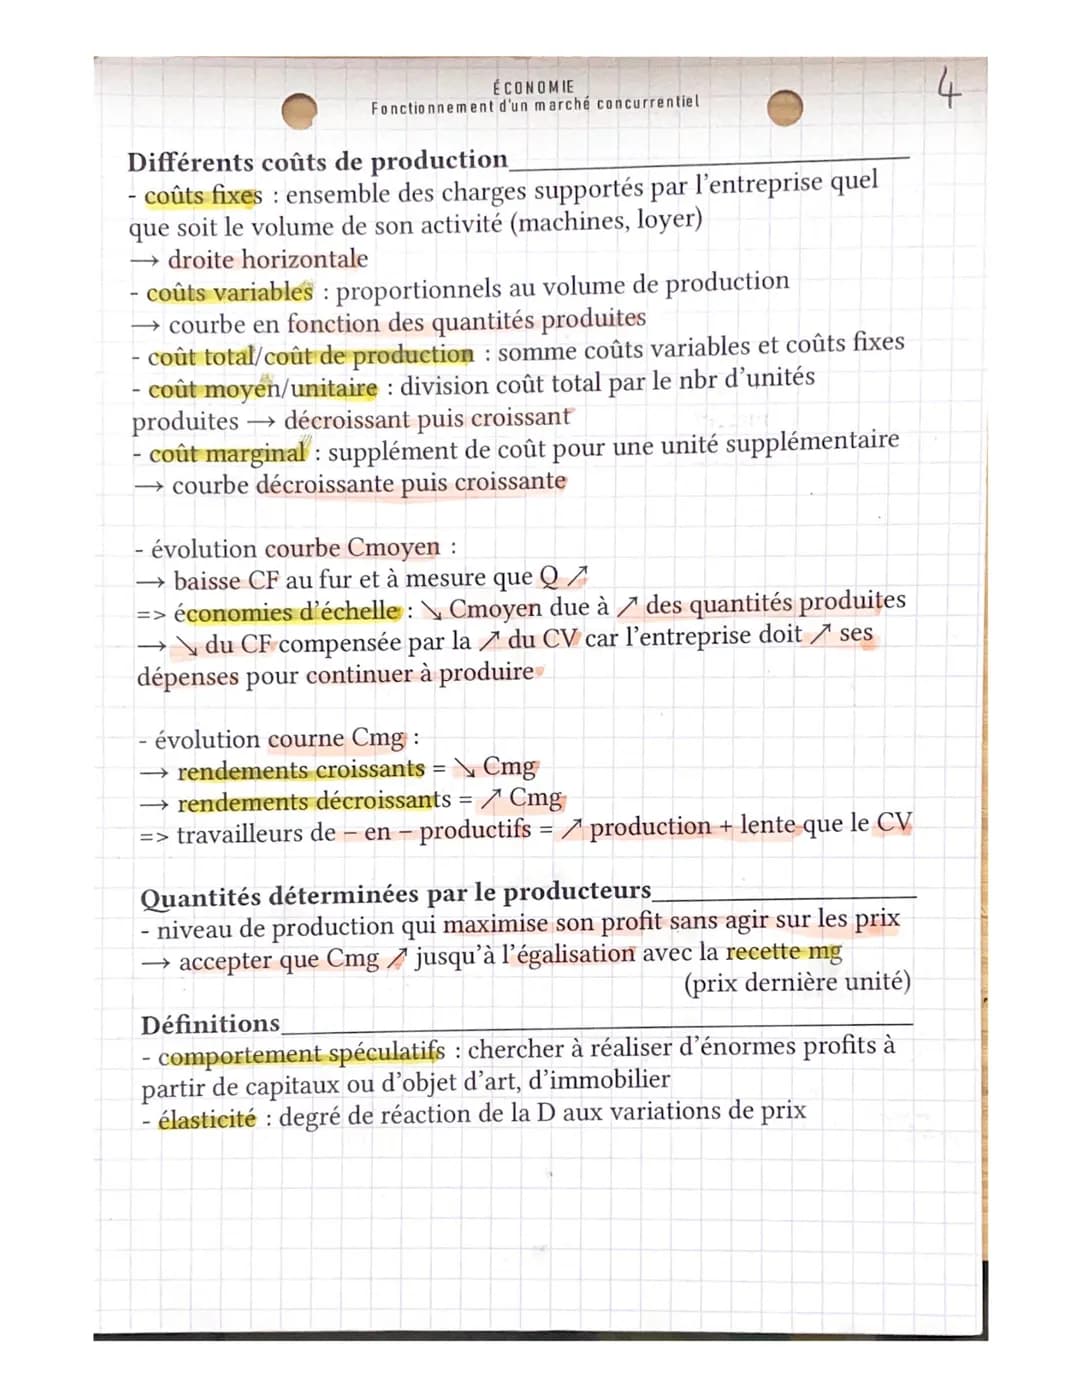 ÉCONOMIE
Fonctionnement d'un marché concurrentiel
4
Différents coûts de production
- coûts fixes : ensemble des charges supportés par l'entreprise quel
que soit le volume de son activité (machines, loyer)
→ droite horizontale
- coûts variables : proportionnels au volume de production
→ courbe en fonction des quantités produites
- coût total/coût de production : somme coûts variables et coûts fixes
- coût moyen/unitaire : division coût total par le nbr d'unités
produites → décroissant puis croissant
- coût marginal : supplément de coût pour une unité supplémentaire
→ courbe décroissante puis croissante
- évolution courbe Cmoyen :
→ baisse CF au fur et à mesure que Q ↗
=> économies d'échelle : ↘ Cmoyen due à ↗ des quantités produites
→ ↘ du CF compensée par la ↗ du CV car l'entreprise doit ↗ ses
dépenses pour continuer à produire
- évolution courne Cmg :
→ rendements croissants = ↘ Cmg
→ rendements décroissants = ↗ Cmg
=> travailleurs de – en – productifs = ↗ production + lente que le CV
Quantités déterminées par le producteurs
- niveau de production qui maximise son profit sans agir sur les prix
→ accepter que Cmg ↗ jusqu'à l'égalisation avec la recette mg
(prix dernière unité)
Définitions
- comportement spéculatifs : chercher à réaliser d'énormes profits à
partir de capitaux ou d'objet d'art, d'immobilier
- élasticité : degré de réaction de la D aux variations de prix